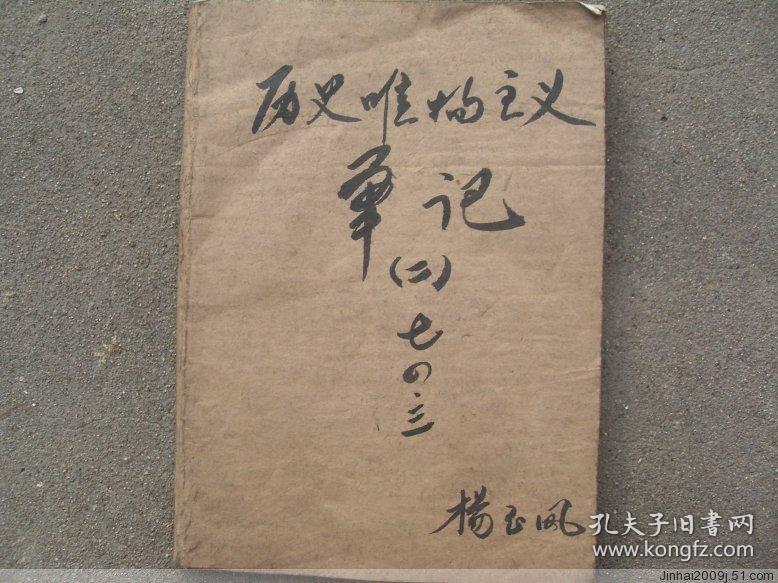 历史唯物主义
筆记
(二)
七四.三
楊玉凤
孔夫子旧書网
www.kongfz.com
Jinhai2009j.51.com